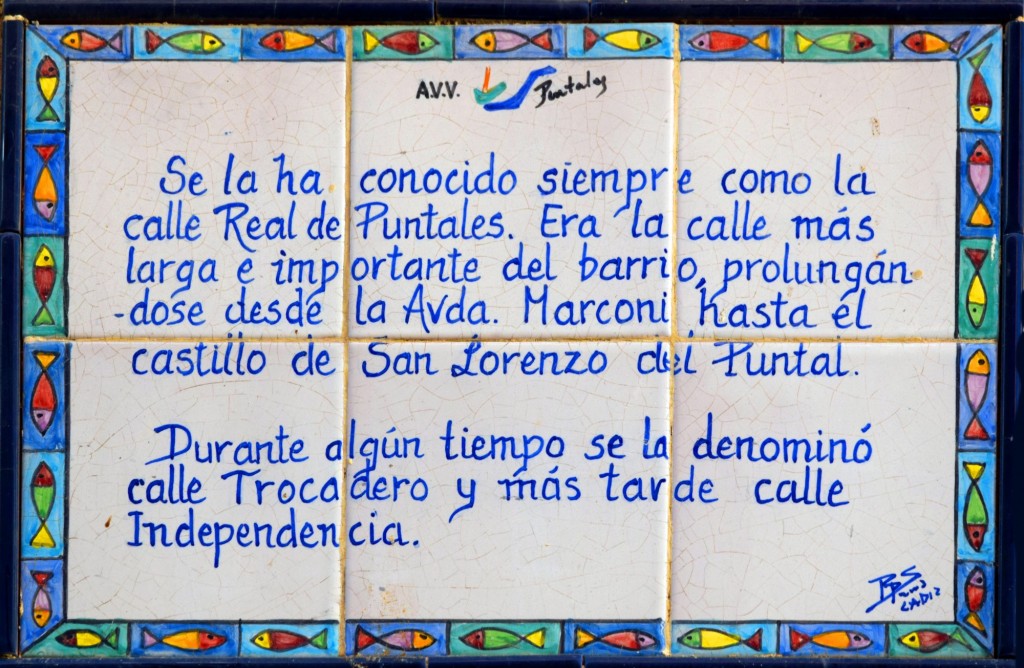 A.V.V. Puntales
Se la ha conocido siempre como la
calle Real de Puntales. Era la calle más
larga e importante del barrio, prolungán-
-dose desde la Avda. Marconi hasta el
castillo de San Lorenzo del Puntal.
Durante algún tiempo se la denominó
calle Trocadero y más tarde calle
Independencia.
CADIZ